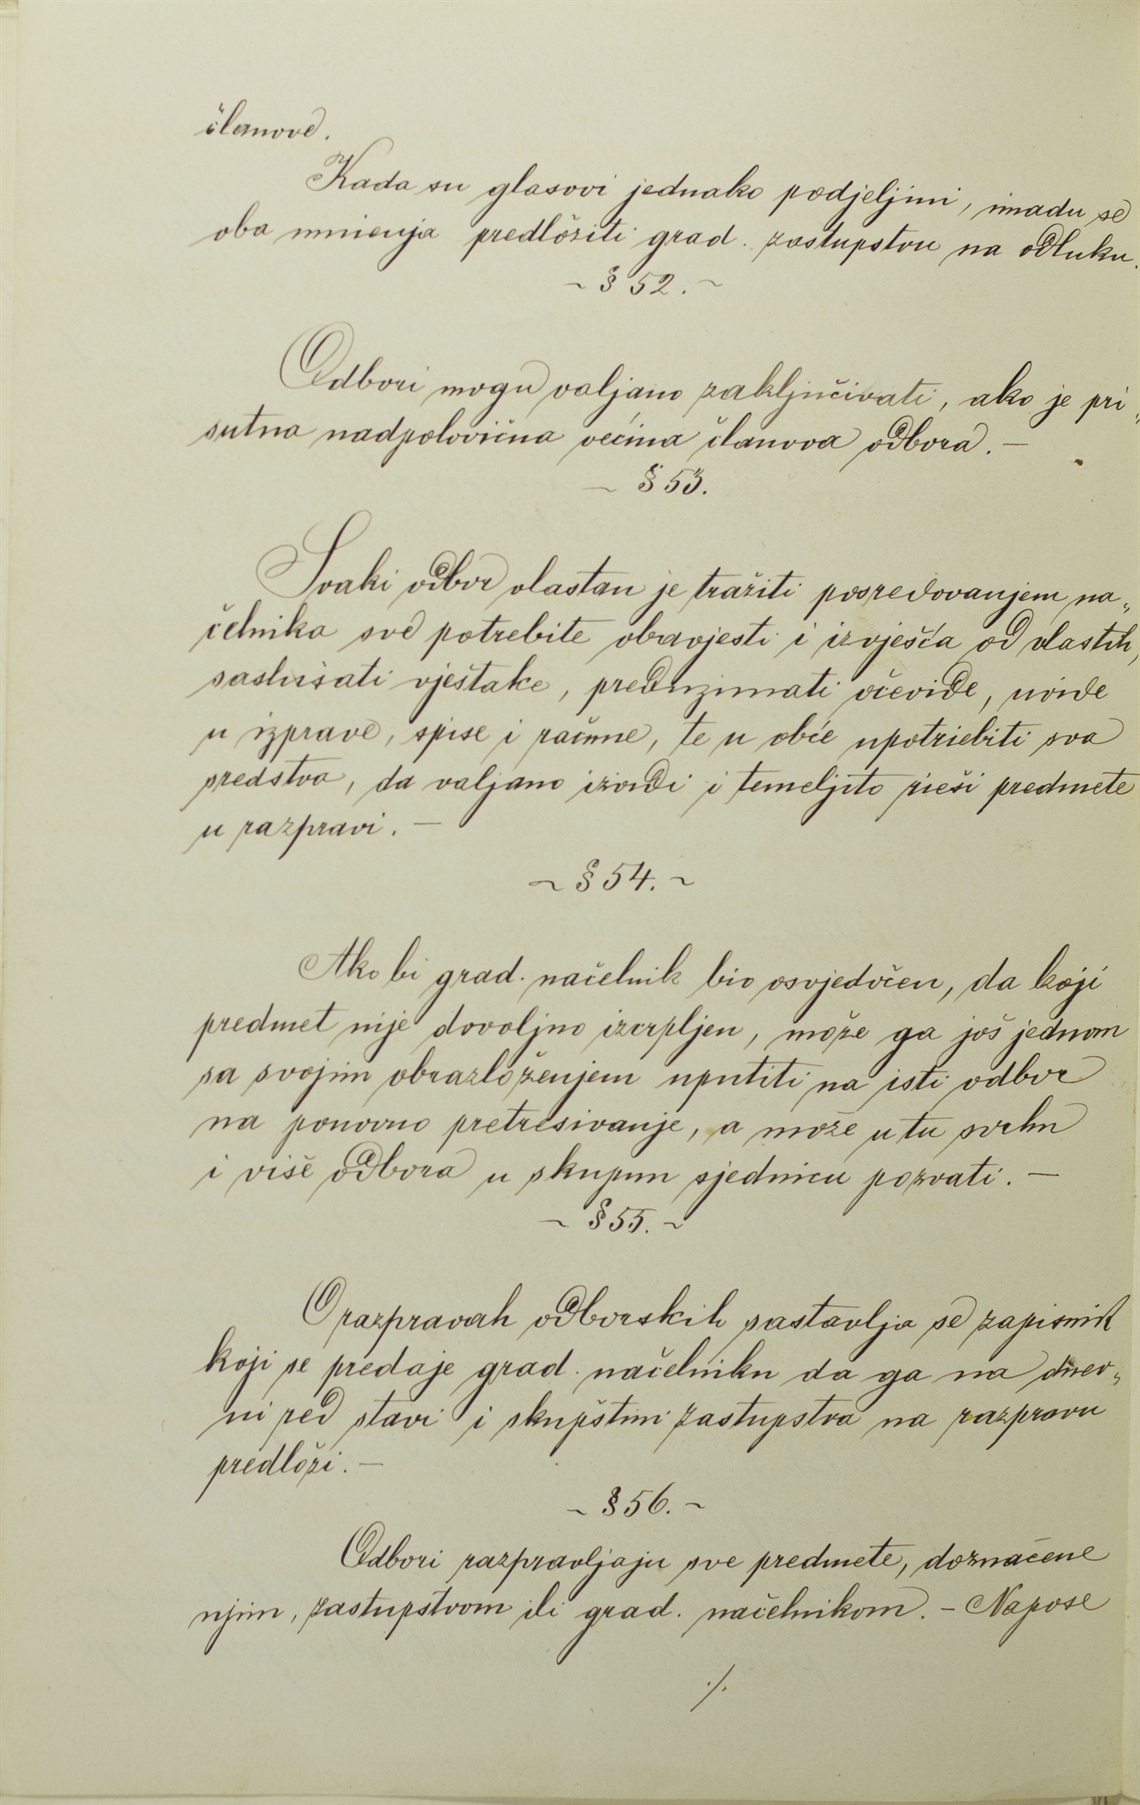 članove.
Kada su glasovi jednako podjeljini, imadu se
oba mnienja predložiti grad. zastupstvu na odluku.
~ § 52. ~
Odbori mogu valjano zaključivati, ako je pri„
sutna nadpolovična većina članova odbora. —
— § 53.
Svaki odbor vlastan je tražiti posredovanjem na„
čelnika sve potrebite obavjesti i izvješća od vlastih,
saslušati vještake, preduzimati očevide, uvide
u izprave, spise i račune, te u obće upotriebiti sva
sredstva, da valjano izvidi i temeljito rieši predmete
u razpravi. —
~ § 54. ~
Ako bi grad. načelnik bio osvjedočen, da koji
predmet nije dovoljno izcrpljen, može ga još jednom
sa svojim obrazloženjem uputiti na isti odbor
na ponovno pretresivanje, a može u tu svrhu
i više odbora u skupnu sjednicu pozvati. —
~ § 55. ~
O razpravah odborskih sastavlja se zapisnik
koji se predaje grad. načelniku da ga na dnev„
ni red stavi i skupštini zastupstva na razpravu
predloži. —
~ § 56. ~
Odbori razpravljaju sve predmete, doznačene
njim, zastupstvom ili grad. načelnikom. – Napose
./.